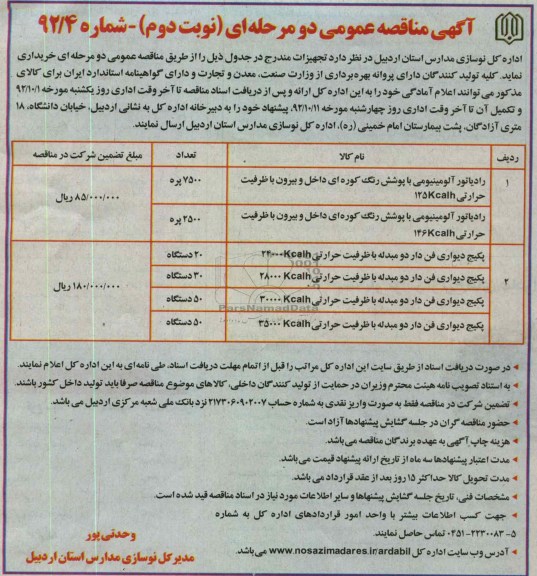 آگهی مناقصه عمومی دو مرحله ای (نوبت دوم) -شماره ۹۲/۴
اداره کل نوسازی مدارس استان اردبیل در نظر دارد تجهیزات مندرج در جدول ذیل را از طریق مناقصه عمومی دو مرحله ای خریداری
نماید. کلیه تولید کنندگان دارای پروانه بهره برداری از وزارت صنعت، معدن و تجارت و دارای گواهینامه استاندارد ایران برای کالای
مذکور می توانند اعلام آمادگی خود را به این اداره کل ارائه و پس از دریافت اسناد مناقصه تا آخر وقت اداری روز یکشنبه مورخه ۹۲/۱۰/۱
و تکمیل آن تا آخر وقت اداری روز چهارشنبه مورخه ۹۲/۱۰/۱۱، پیشنهاد خود را به دبیرخانه اداره کل به نشانی اردبیل، خیابان دانشگاه، ۱۸
متری آزادگان، پشت بیمارستان امام خمینی (ره)، اداره کل نوسازی مدارس استان اردبیل ارسال نمایند.
ردیف نام کالا تعداد مبلغ تضمین شرکت در مناقصه
۱ رادیاتور آلومینیومی با پوشش رنگ کوره ای داخل و بیرون با ظرفیت ۷۵۰۰ پره ۸۵/۰۰۰/۰۰۰ ریال
حرارتی ۱۲۵Kcalh
رادیاتور آلومینیومی با پوشش رنگ کوره ای داخل و بیرون با ظرفیت ۲۵۰۰ پره
حرارتی ۱۴۶Kcalh
۲ پکیج دیواری فن دار دو مبدله با ظرفیت حرارتی ۲۴۰۰۰Kcalh ۲۰ دستگاه ۱۸۰/۰۰۰/۰۰۰ ریال
پکیج دیواری فن دار دو مبدله با ظرفیت حرارتی ۲۸۰۰۰ Kcalh ۳۰ دستگاه
پکیج دیواری فن دار دو مبدله با ظرفیت حرارتی ۳۰۰۰۰ Kcalh ۵۰ دستگاه
پکیج دیواری فن دار دو مبدله با ظرفیت حرارتی ۳۵۰۰۰ Kcalh ۵۰ دستگاه
ParsNamadData
در صورت دریافت اسناد از طریق سایت این اداره کل مراتب را قبل از اتمام مهلت دریافت اسناد، طی نامه ای به این اداره کل اعلام نمایند.
به استناد تصویب نامه هیئت محترم وزیران در حمایت از تولید کنندگان داخلی، کالاهای موضوع مناقصه صرفا باید تولید داخل کشور باشند.
تضمین شرکت در مناقصه فقط به صورت واریز نقدی به شماره حساب ۲۱۷۳۰۶۰۹۰۲۰۰۷ نزد بانک ملی شعبه مرکزی اردبیل می باشد.
حضور مناقصه گران در جلسه گشایش پیشنهادها آزاد است.
هزینه چاپ آگهی به عهده برندگان مناقصه می باشد.
مدت اعتبار پیشنهادها سه ماه از تاریخ ارائه پیشنهاد قیمت می باشد.
مدت تحویل کالا حداکثر ۱۵ روز بعد از عقد قرارداد می باشد.
مشخصات فنی، تاریخ جلسه گشایش پیشنهاها و سایر اطلاعات مورد نیاز در اسناد مناقصه قید شده است.
جهت کسب اطلاعات بیشتر با واحد امور قراردادهای اداره کل به شماره
۵-۲۲۳۰۰۸۳-۰۴۵۱ تماس حاصل نمایند.
آدرس وب سایت اداره کل www.nosazimadares.ir/ardabil می باشد.
وحدتی پور
مدیر کل نوسازی مدارس استان اردبیل